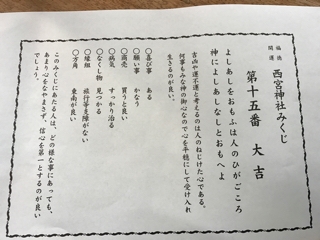 福徳開運 西宮神社みくじ
第十五番 大吉
よしあしをおもふは人のひがごころ
神によしあしなしとおもへよ
吉凶や運不運と考えるのは人のねじけた心である。
何事もみな神の御心なので心を平穏にして受け入れ
生きるのが良い。
〇喜び事 ある
〇願い事 かなう
〇商売 買うと良い
〇病気 すっかり治る
〇なくし物 見つかる
〇縁組 旅行等支障がない
〇方角 東南が良い
このみくじにあたる人は、どの様な事にあっても、
あまり心をなやまさず、信心を第一とするのが良い
でしょう。